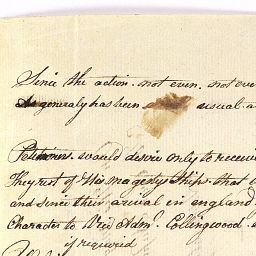 Since the action. not even. not eve
As generealy has been usual. a
Petitioners. would desire only to receive
They rest of His majestys Ships. that w
and Since their arrival in england.
Character to Vice Adm. Collingwood.
if required